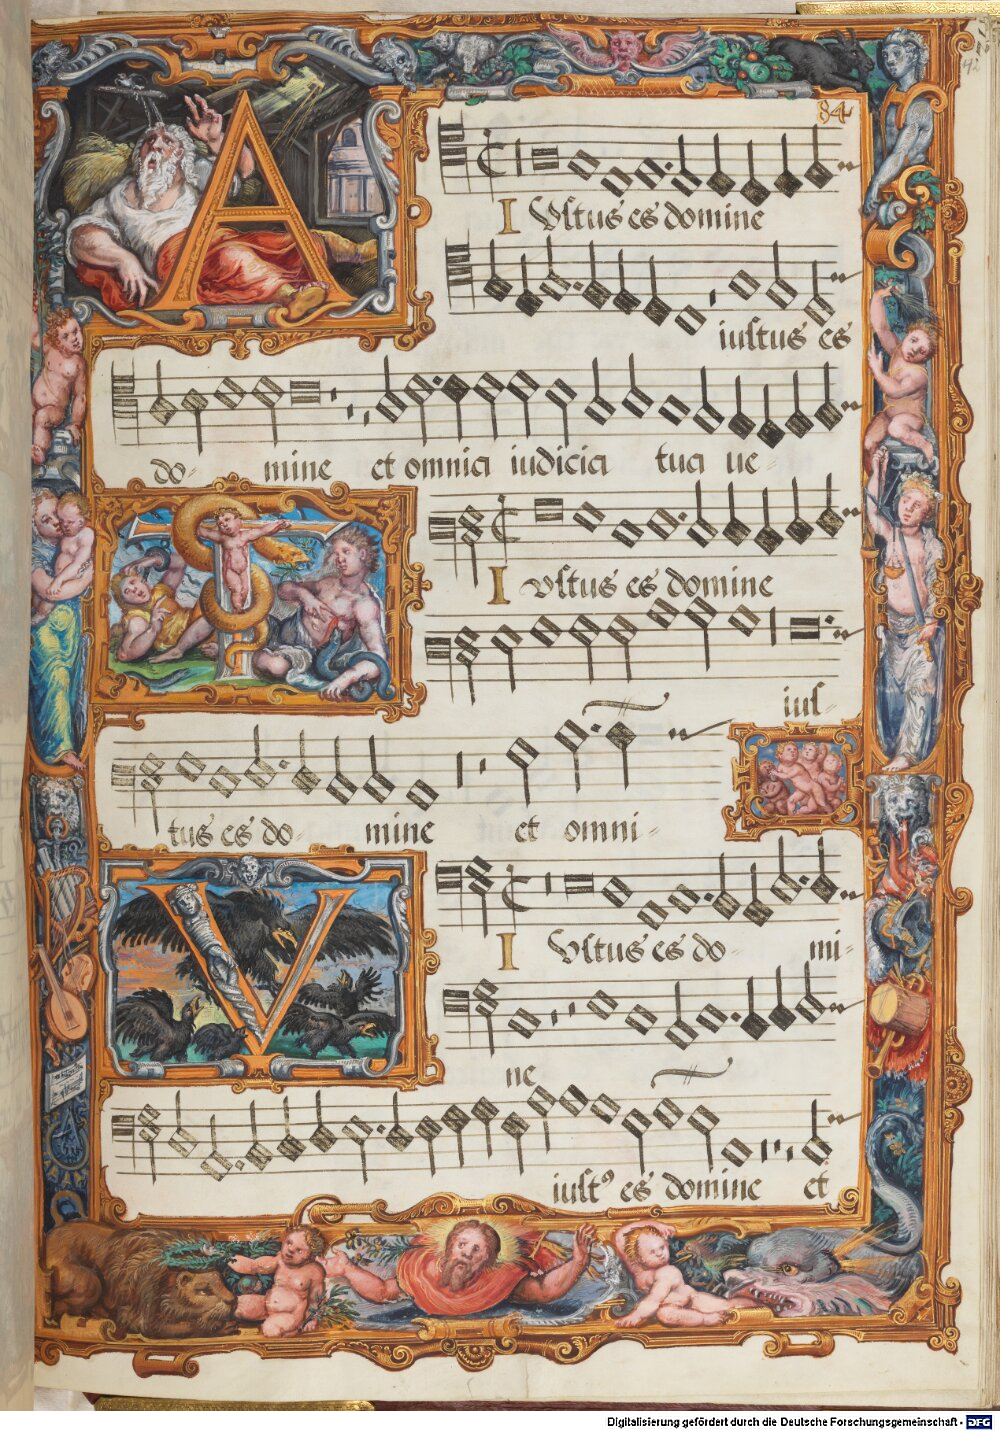 84
A
I Ustus es domine
iustus es
do- mine et omnia iudicia tua ue-
T
I ustus es domine
ius-
tus es do- mine et omni-
V
I Ustus es do- mi-
ne
iust⁹ es domine et
Digitalisierung gefördert durch die Deutsche Forschungsgemeinschaft - DFG